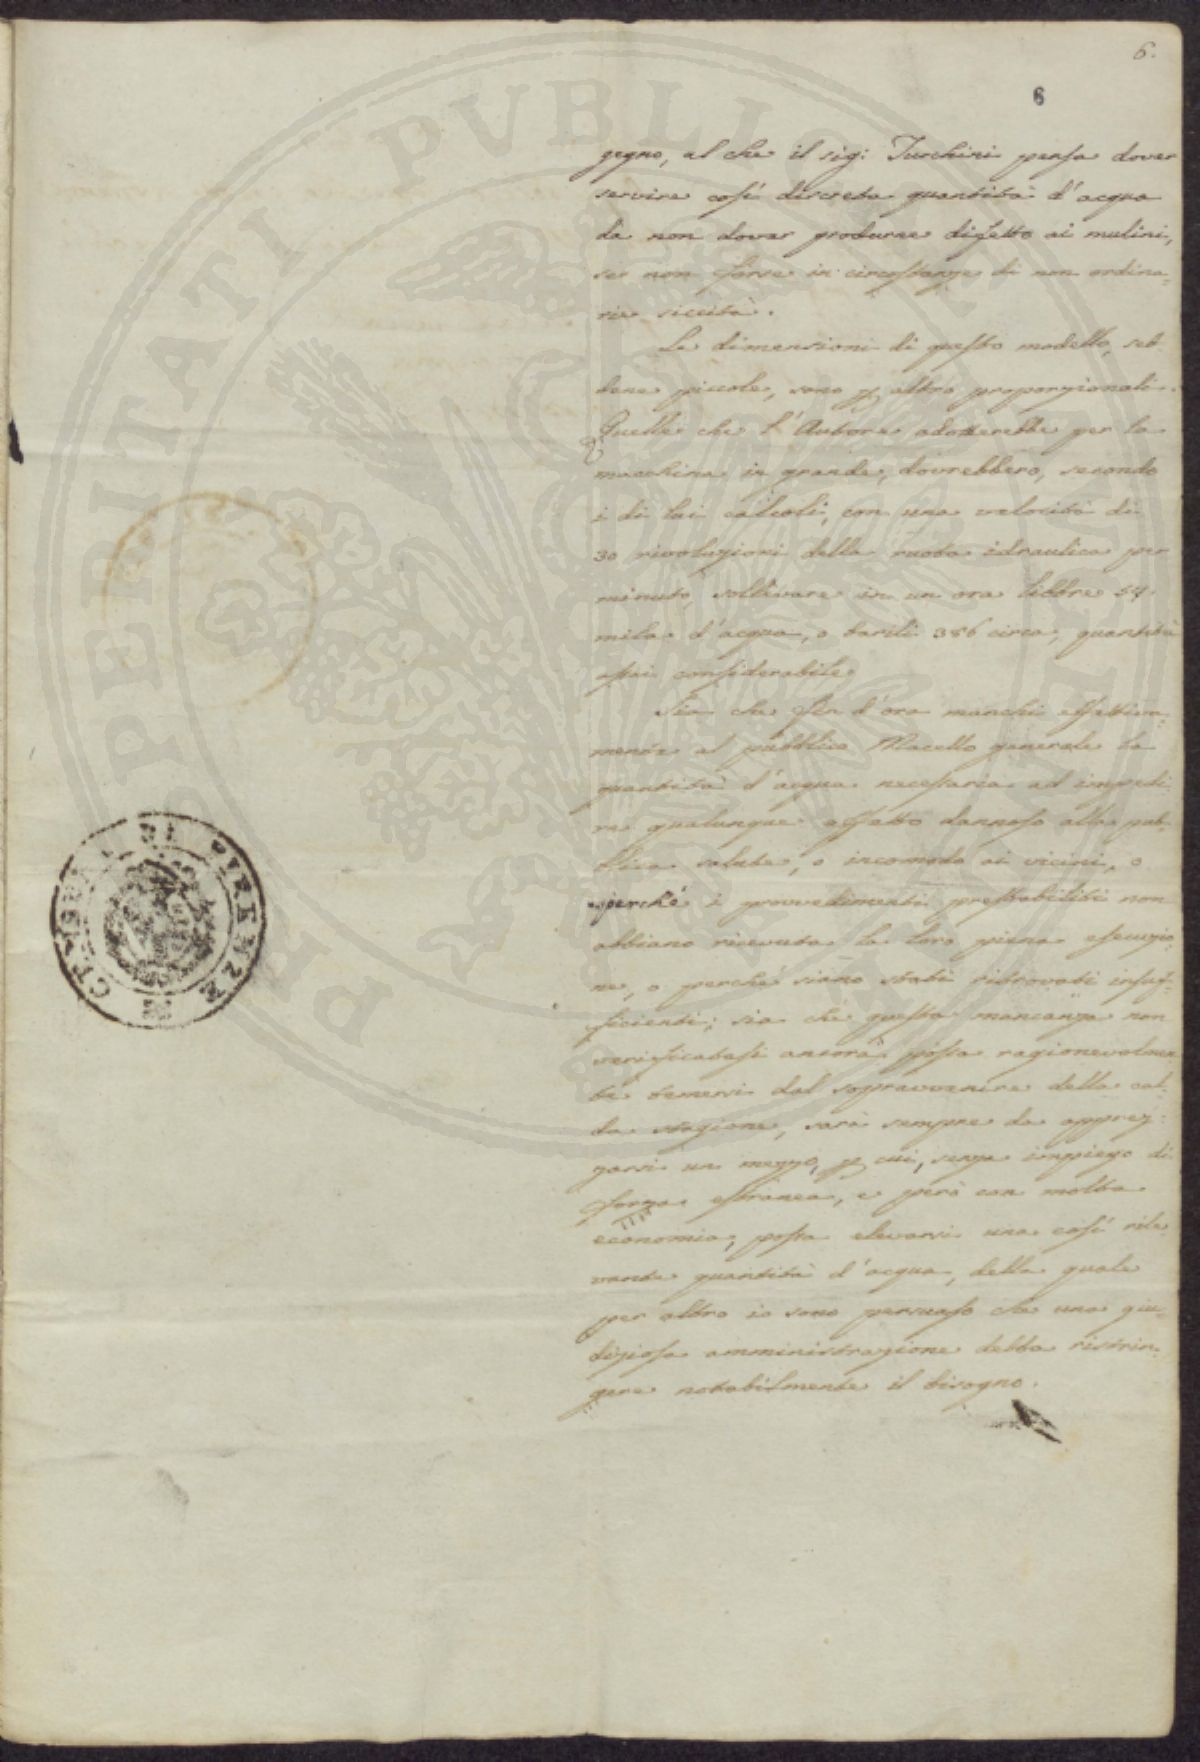 6.
6
gegno, al che il sig: Turchini pensa dover
servire così discreta quantità d'acqua
da non dover produrre difetto ai mulini,
se non forse in circostanze di non ordina-
rie siccità.
Le dimensioni di questo modello, seb-
bene piccole, sono p altro proporzionali.
Quelle che l'Autore adotterebbe per la
macchina in grande, dovrebbero, secondo
i di lui calcoli, con una velocità di
30 rivoluzioni della ruota idraulica per
minuto, sollevare in un ora libbre 54
mila d'acqua, o barili 386 circa, quantità
assai considerabile.
Sia che fin d'ora manchi effettiva-
mente al pubblico Macello generale la
quantità d'acqua necessaria ad impedi-
re qualunque effetto dannoso alla pub-
blica salute, o incomodo ai vicini, o
perché i provvedimenti prestabiliti non
abbiano ricevuta la loro piena esecuzio-
ne, o perché siano stati ritrovati insuf-
ficienti; sia che questa mancanza non
verificatasi ancora possa ragionevolmen-
te temersi dal sopravvenire della cal-
da stagione, sarà sempre da apprez-
zarsi un mezzo, p cui, senza impiego di
forza estranea, e però con molta
economia, possa elevarsi una così rile-
vante quantità d'acqua, della quale
per altro io sono persuaso che una giu-
diziosa amministrazione debba ristrin-
gere notabilmente il bisogno.
PROSPERITATI PUBLICAE
DI FIRENZE